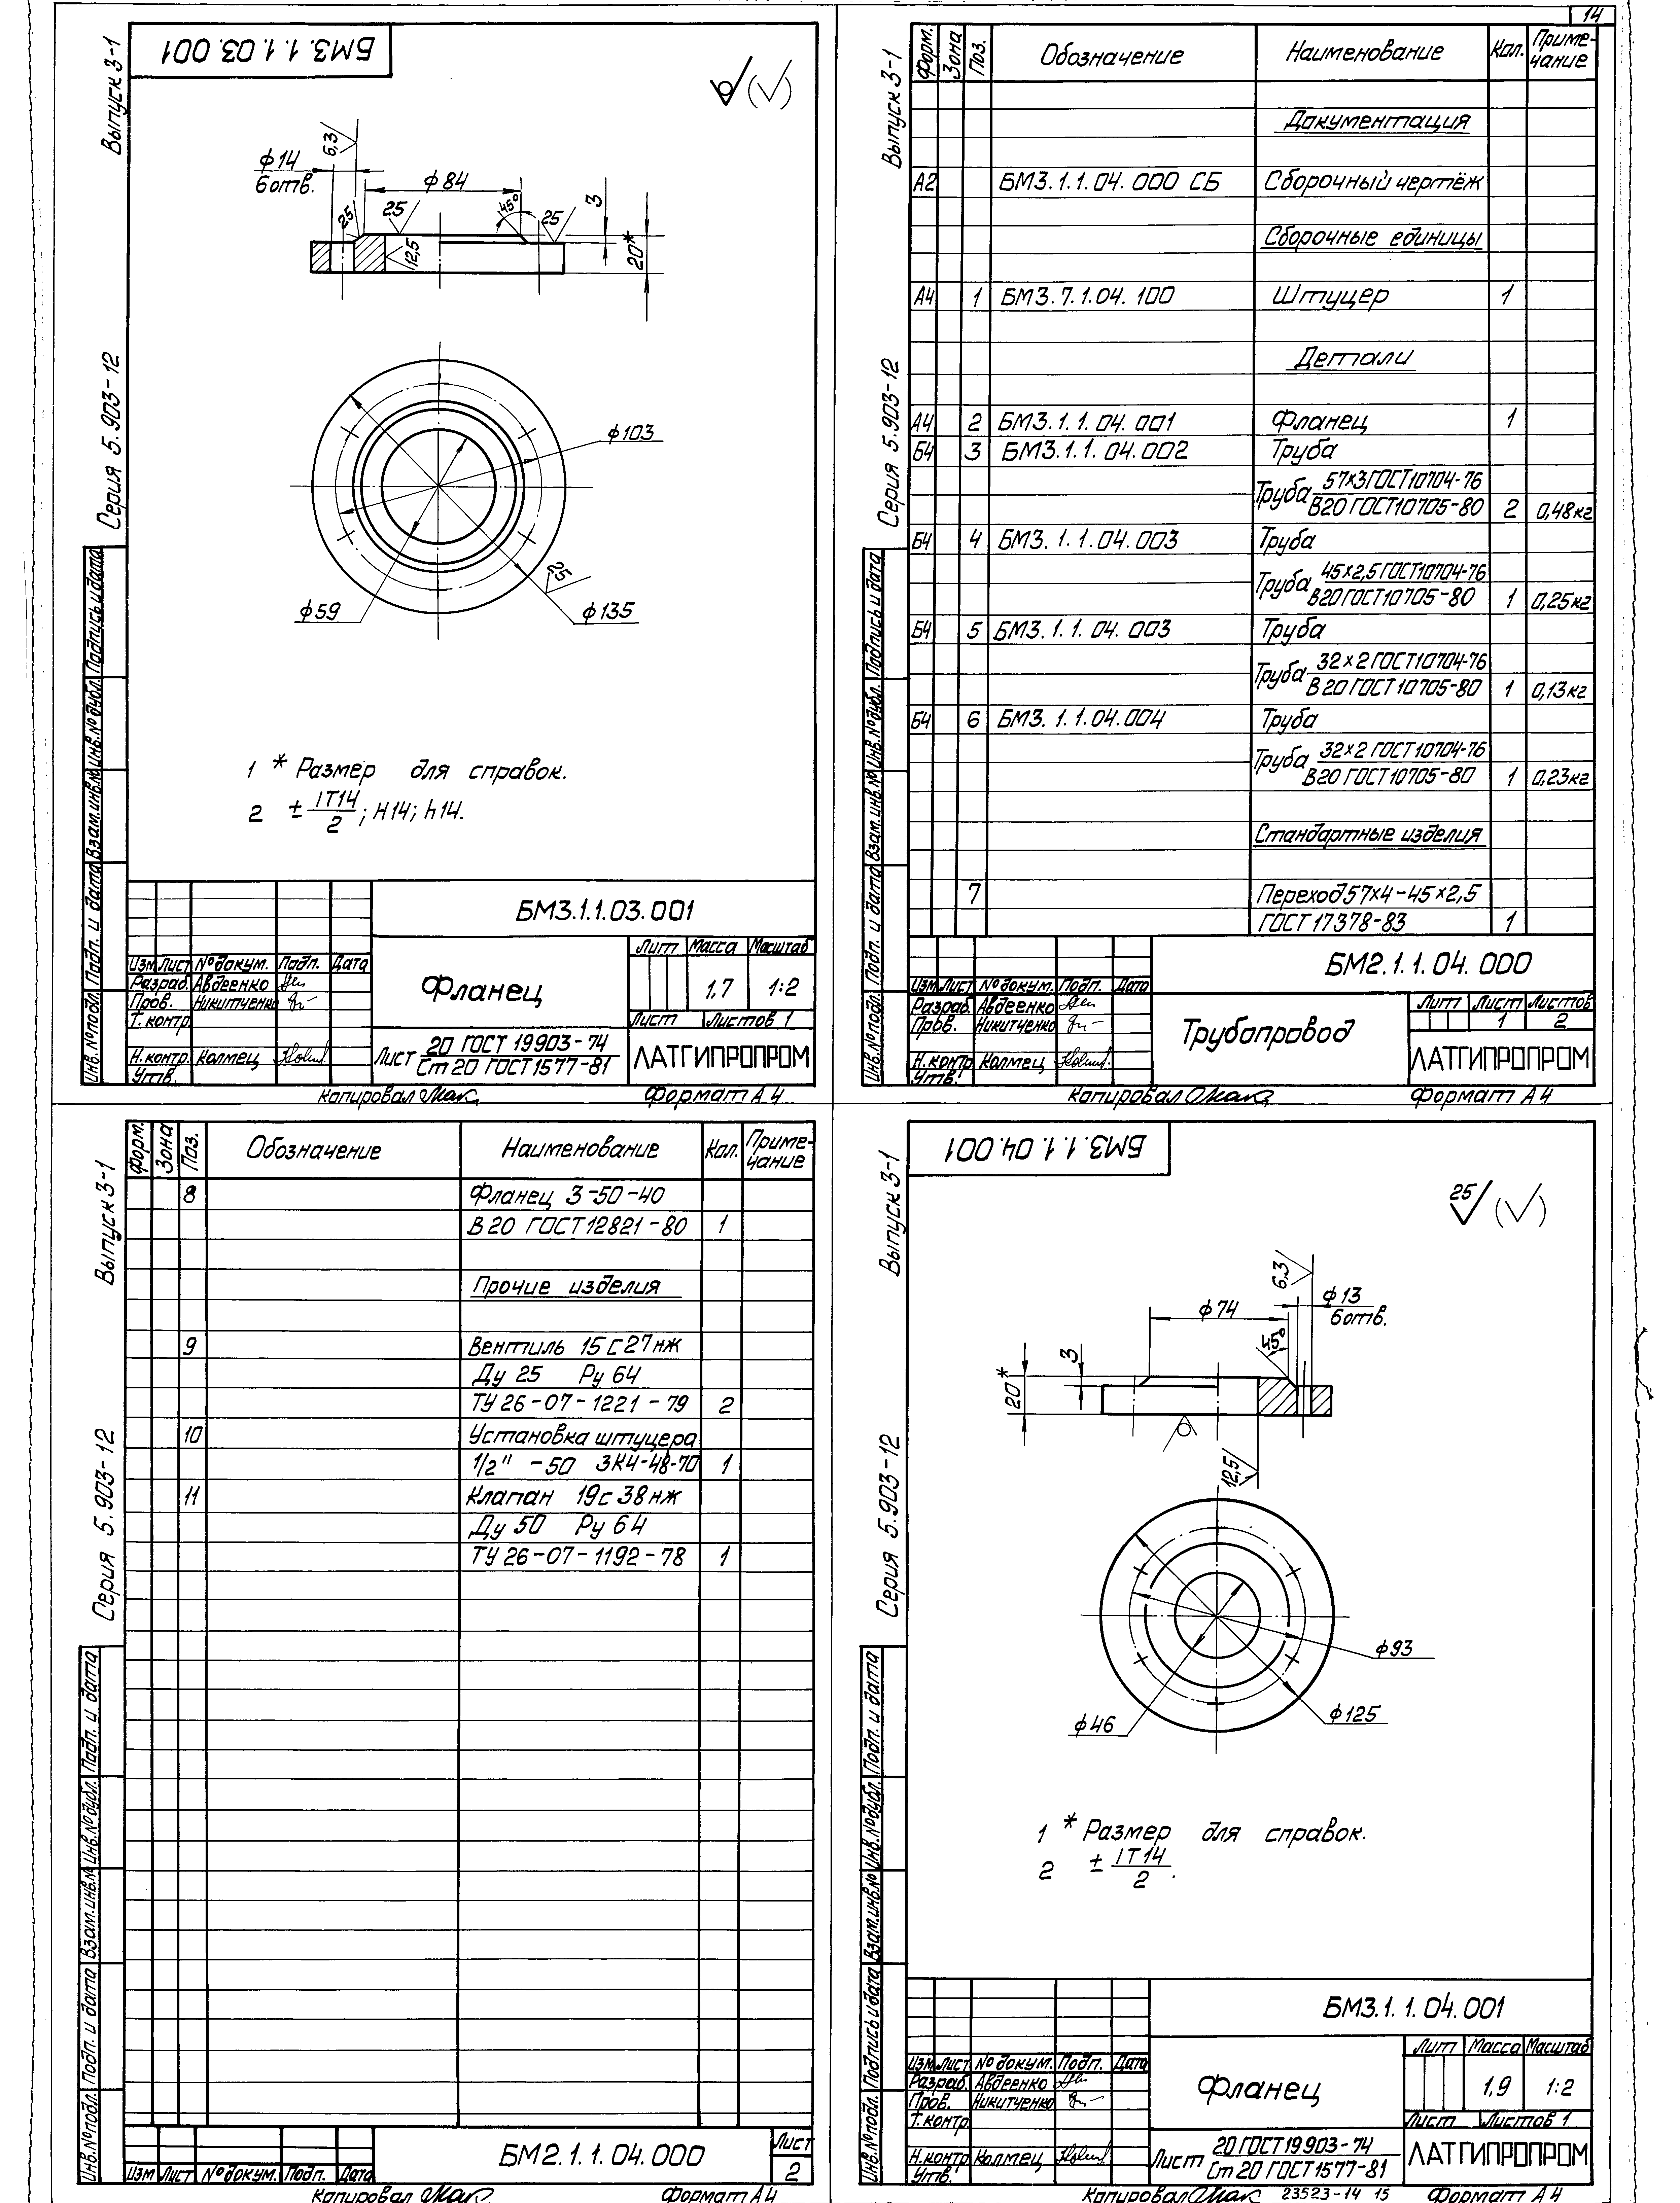 14
БМ3.1.1.03.001
Выпуск 3-1
Серия 5.903-12
6,3
ϕ14
6отв.
ϕ84
25
25
45°
25
3
20*
12,5
ϕ103
25
ϕ59
ϕ135
1 * Размер для справок.
2 ± IT14/2; H14; h14.
Инв.№подл. Подп. и дата Взам.инв.№ Инв.№дубл. Подпись и дата
БМ3.1.1.03.001
Изм Лист №докум. Подп. Дата
Разраб. Авдеенко
Пров. Никитченко
Т.контр.
Н.контр. Колмец
Утв.
Фланец
Лит Масса Масштаб
1,7 1:2
Лист Листов 1
Лист 20 ГОСТ 19903-74
Ст 20 ГОСТ 1577-81
ЛАТГИПРОПРОМ
Копировал Формат А4
Выпуск 3-1
Серия 5.903-12
Форм. Зона Поз. Обозначение Наименование Кол. Приме-чание
Документация
А2 БМ3.1.1.04.000 СБ Сборочный чертёж
Сборочные единицы
А4 1 БМ3.7.1.04.100 Штуцер 1
Детали
А4 2 БМ3.1.1.04.001 Фланец 1
Б4 3 БМ3.1.1.04.002 Труба
Труба 57×3 ГОСТ10704-76
В20 ГОСТ10705-80 2 0,48кг
Б4 4 БМ3.1.1.04.003 Труба
Труба 45×2,5 ГОСТ10704-76
В20 ГОСТ10705-80 1 0,25кг
Б4 5 БМ3.1.1.04.003 Труба
Труба 32×2 ГОСТ10704-76
В20 ГОСТ10705-80 1 0,13кг
Б4 6 БМ3.1.1.04.004 Труба
Труба 32×2 ГОСТ10704-76
В20 ГОСТ10705-80 1 0,23кг
Стандартные изделия
7 Переход 57×4-45×2,5
ГОСТ 17378-83 1
Инв.№подл. Подп. и дата Взам.инв.№ Инв.№дубл. Подпись и дата
БМ2.1.1.04.000
Изм Лист №докум. Подп. Дата
Разраб. Авдеенко
Пров. Никитченко
Н.контр. Колмец
Утв.
Трубопровод
Лит Лист Листов
1 2
ЛАТГИПРОПРОМ
Копировал Формат А4
Выпуск 3-1
Серия 5.903-12
Форм. Зона Поз. Обозначение Наименование Кол. Приме-чание
8 Фланец 3-50-40
В20 ГОСТ12821-80 1
Прочие изделия
9 Вентиль 15с27нж
Ду 25 Ру 64
ТУ 26-07-1221-79 2
10 Установка штуцера
1/2" -50 ЗК4-48-70 1
11 Клапан 19с38нж
Ду 50 Ру 64
ТУ 26-07-1192-78 1
Инв.№подл. Подп. и дата Взам.инв.№ Инв.№дубл. Подп. и дата
БМ2.1.1.04.000
Лист
2
Изм Лист №докум. Подп. Дата
Копировал Формат А4
БМ3.1.1.04.001
Выпуск 3-1
Серия 5.903-12
25
6,3
ϕ13
6отв.
ϕ74
45°
3
20*
12,5
ϕ93
ϕ125
ϕ46
1 * Размер для справок.
2 ± IT14/2.
Инв.№подл. Подпись и дата Взам.инв.№ Инв.№дубл. Подп. и дата
БМ3.1.1.04.001
Изм Лист №докум. Подп. Дата
Разраб. Авдеенко
Пров. Никитченко
Т.контр.
Н.контр. Колмец
Утв.
Фланец
Лит Масса Масштаб
1,9 1:2
Лист Листов 1
Лист 20 ГОСТ 19903-74
Ст 20 ГОСТ 1577-81
ЛАТГИПРОПРОМ
Копировал 23523-14 15 Формат А4